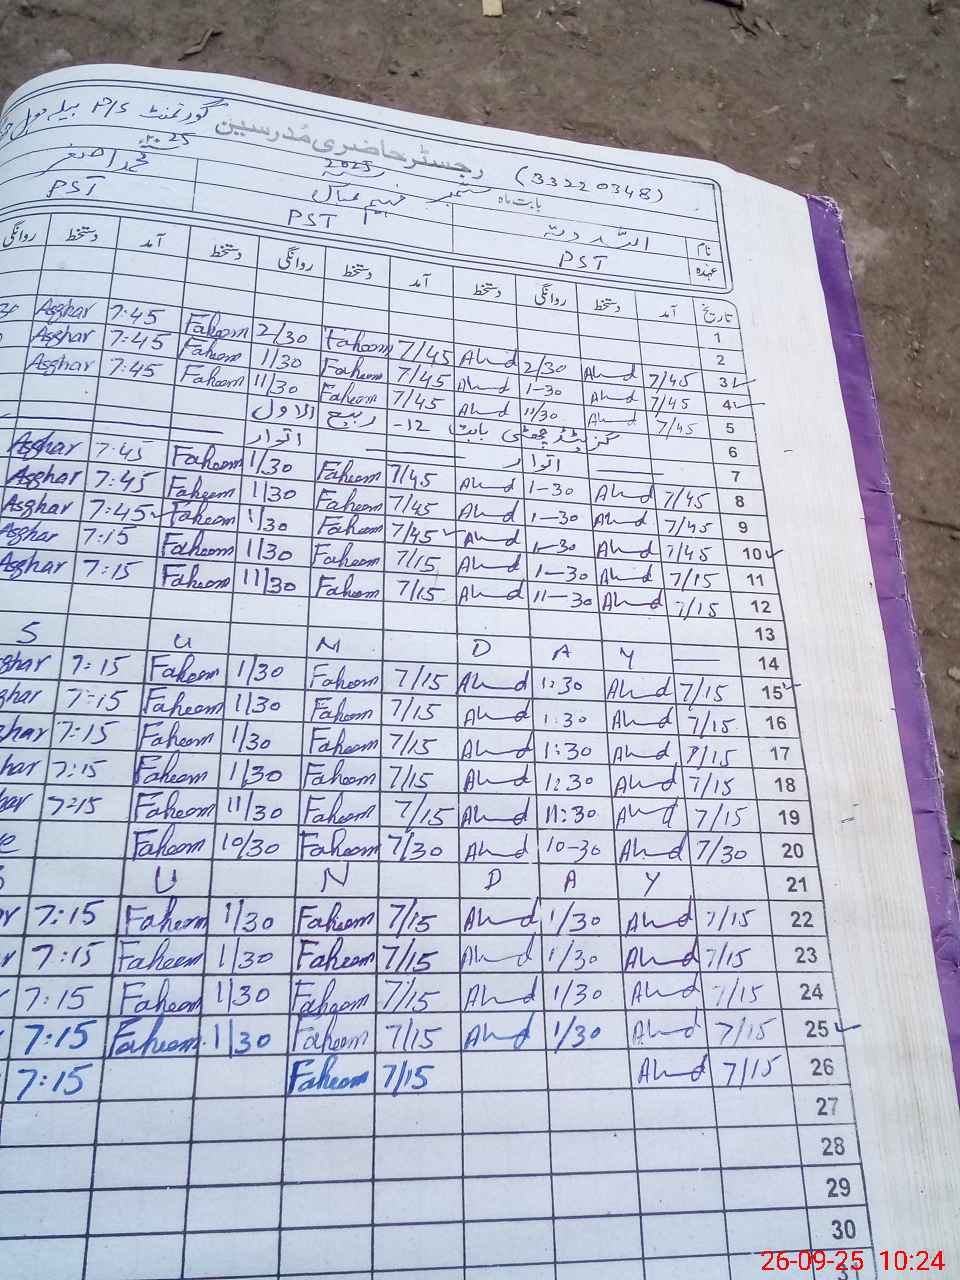 گورنمنٹ P/S
رجسٹر حاضری مُدرسین (33220348)
بابت ماہ ستمبر 2025
نام اللہ دتہ
عہدہ PST PST PST
تاریخ آمد دستخط روانگی دستخط آمد دستخط روانگی دستخط آمد دستخط روانگی
1
2
3 7/45 Ahd 2/30 Ahd 7/45 Faheem 2/30 Faheem 7:45 Asghar
4 7/45 Ahd 1-30 Ahd 7/45 Faheem 1/30 Faheem 7:45 Asghar
5 7/45 Ahd 11/30 Ahd 7/45 Faheem 11/30 Faheem 7:45 Asghar
6 گزیٹڈ چھٹی بابت 12- ربیع الاول
7 اتوار اتوار
8 7/45 Ahd 1-30 Ahd 7/45 Faheem 1/30 Faheem 7:45 Asghar
9 7/45 Ahd 1-30 Ahd 7/45 Faheem 1/30 Faheem 7:45 Asghar
10 7/45 Ahd 1-30 Ahd 7/45 Faheem 1/30 Faheem 7:45 Asghar
11 7/15 Ahd 1-30 Ahd 7/15 Faheem 1/30 Faheem 7:15 Asghar
12 7/15 Ahd 11-30 Ahd 7/15 Faheem 11/30 Faheem 7:15 Asghar
13
14 S U N D A Y
15 7/15 Ahd 1:30 Ahd 7/15 Faheem 1/30 Faheem 7:15 ghar
16 7/15 Ahd 1:30 Ahd 7/15 Faheem 1/30 Faheem 7:15 ghar
17 7/15 Ahd 1:30 Ahd 7/15 Faheem 1/30 Faheem 7:15 har
18 7/15 Ahd 1:30 Ahd 7/15 Faheem 1/30 Faheem 7:15 har
19 7/15 Ahd 11:30 Ahd 7/15 Faheem 11/30 Faheem 7:15 har
20 7/30 Ahd 10-30 Ahd 7/30 Faheem 10/30 Faheem
21 U N D A Y
22 7/15 Ahd 1/30 Ahd 7/15 Faheem 1/30 Faheem 7:15
23 7/15 Ahd 1/30 Ahd 7/15 Faheem 1/30 Faheem 7:15
24 7/15 Ahd 1/30 Ahd 7/15 Faheem 1/30 Faheem 7:15
25 7/15 Ahd 1/30 Ahd 7/15 Faheem 1/30 Faheem 7:15
26 7/15 Ahd 7/15 Faheem 7:15
27
28
29
30
26-09-25 10:24